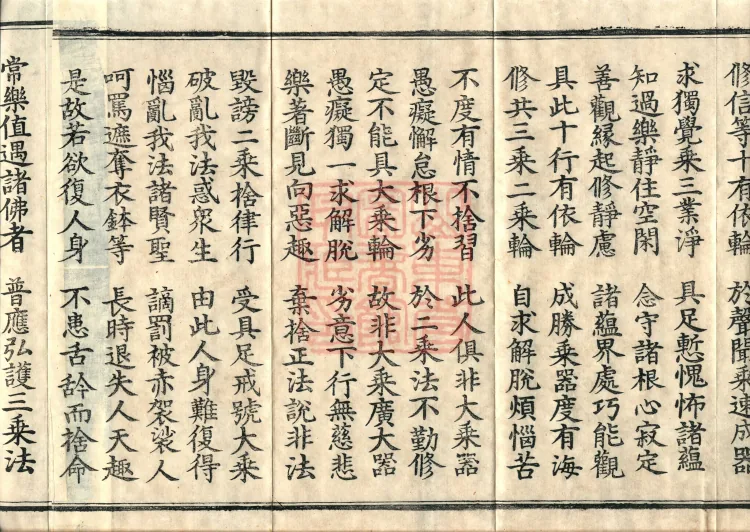 修信等十有依輪 於聲聞乘速成器
求獨覺乘三業淨 具足慙愧怖諸蘊
知過樂靜住空閑 念守諸根心寂定
善觀緣起修靜慮 諸蘊界處巧能觀
具此十行有依輪 成勝乘器度有海
修共三乘二乘輪 自求解脫煩惱苦
不度有情不捨習 此人俱非大乘器
愚癡懈怠根下劣 於二乘法不勤修
定不能具大乘輪 故非大乘廣大器
愚癡獨一求解脫 劣意下行無慈悲
樂著斷見向惡趣 棄捨正法說非法
毀謗二乘捨律行 受具足戒號大乘
破亂我法惑眾生 由此人身難復得
惱亂我法諸賢聖 謫罰被赤袈裟人
呵罵遮奪衣鉢等 長時退失人天趣
是故若欲復人身 不患舌𦧴而捨命
常樂值遇諸佛者 普應弘護三乘法